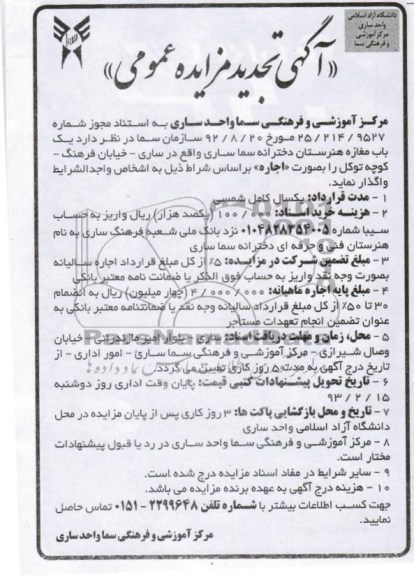 دانشگاه آزاد اسلامی
واحد ساری
مرکز آموزشی
و فرهنگی سما
«آگهی تجدید مزایده عمومی»
مرکز آموزشی و فرهنگی سما واحد ساری به استناد مجوز شماره
۲۵/۲۱۴/۹۵۲۷ مورخ ۹۲/۸/۲۰ سازمان سما در نظر دارد یک
باب مغازه هنرستان دخترانه سما ساری واقع در ساری - خیابان فرهنگ -
کوچه توکل را بصورت «اجاره» براساس شرایط ذیل به اشخاص واجدالشرایط
واگذار نماید.
۱ - مدت قرارداد: یکسال کامل شمسی
۲ - هزینه خرید اسناد: ۱۰۰/۰۰۰ (یکصد هزار) ریال واریز به حساب
سیبا شماره ۰۱۰۴۸۲۸۳۵۴۰۰۵ نزد بانک ملی شعبه فرهنگ ساری به نام
هنرستان فنی و حرفه ای دخترانه سما ساری
۳ - مبلغ تضمین شرکت در مزایده: ۵٪ از کل مبلغ قرارداد اجاره سالیانه
بصورت وجه نقد واریز به حساب فوق الذکر یا ضمانت نامه معتبر بانکی
۴ - مبلغ پایه اجاره ماهیانه: ۴/۰۰۰/۰۰۰ (چهار میلیون) ریال به انضمام
۳۰ تا ۵۰٪ از کل مبلغ قرارداد سالیانه وجه نقد یا ضمانتنامه معتبر بانکی به
عنوان تضمین انجام تعهدات مستأجر
۵ - محل، زمان و مهلت دریافت اسناد: ساری - بلوار امیر مازندرانی - خیابان
وصال شیرازی - مرکز آموزشی و فرهنگی سما ساری - امور اداری - از
تاریخ درج آگهی به مدت ۵ روز کاری تعیین می گردد.
۶ - تاریخ تحویل پیشنهادات کتبی قیمت: پایان وقت اداری روز دوشنبه
۹۳/۲/۱۵
۷ - تاریخ و محل بازگشایی پاکت ها: ۳ روز کاری پس از پایان مزایده در محل
دانشگاه آزاد اسلامی واحد ساری
۸ - مرکز آموزشی و فرهنگی سما واحد ساری در رد یا قبول پیشنهادات
مختار است.
۹ - سایر شرایط در مفاد اسناد مزایده درج شده است.
۱۰ - هزینه درج آگهی به عهده برنده مزایده می باشد.
جهت کسب اطلاعات بیشتر با شماره تلفن ۲۲۹۹۶۴۸ - ۰۱۵۱ تماس حاصل
نمایید.
مرکز آموزشی و فرهنگی سما واحد ساری